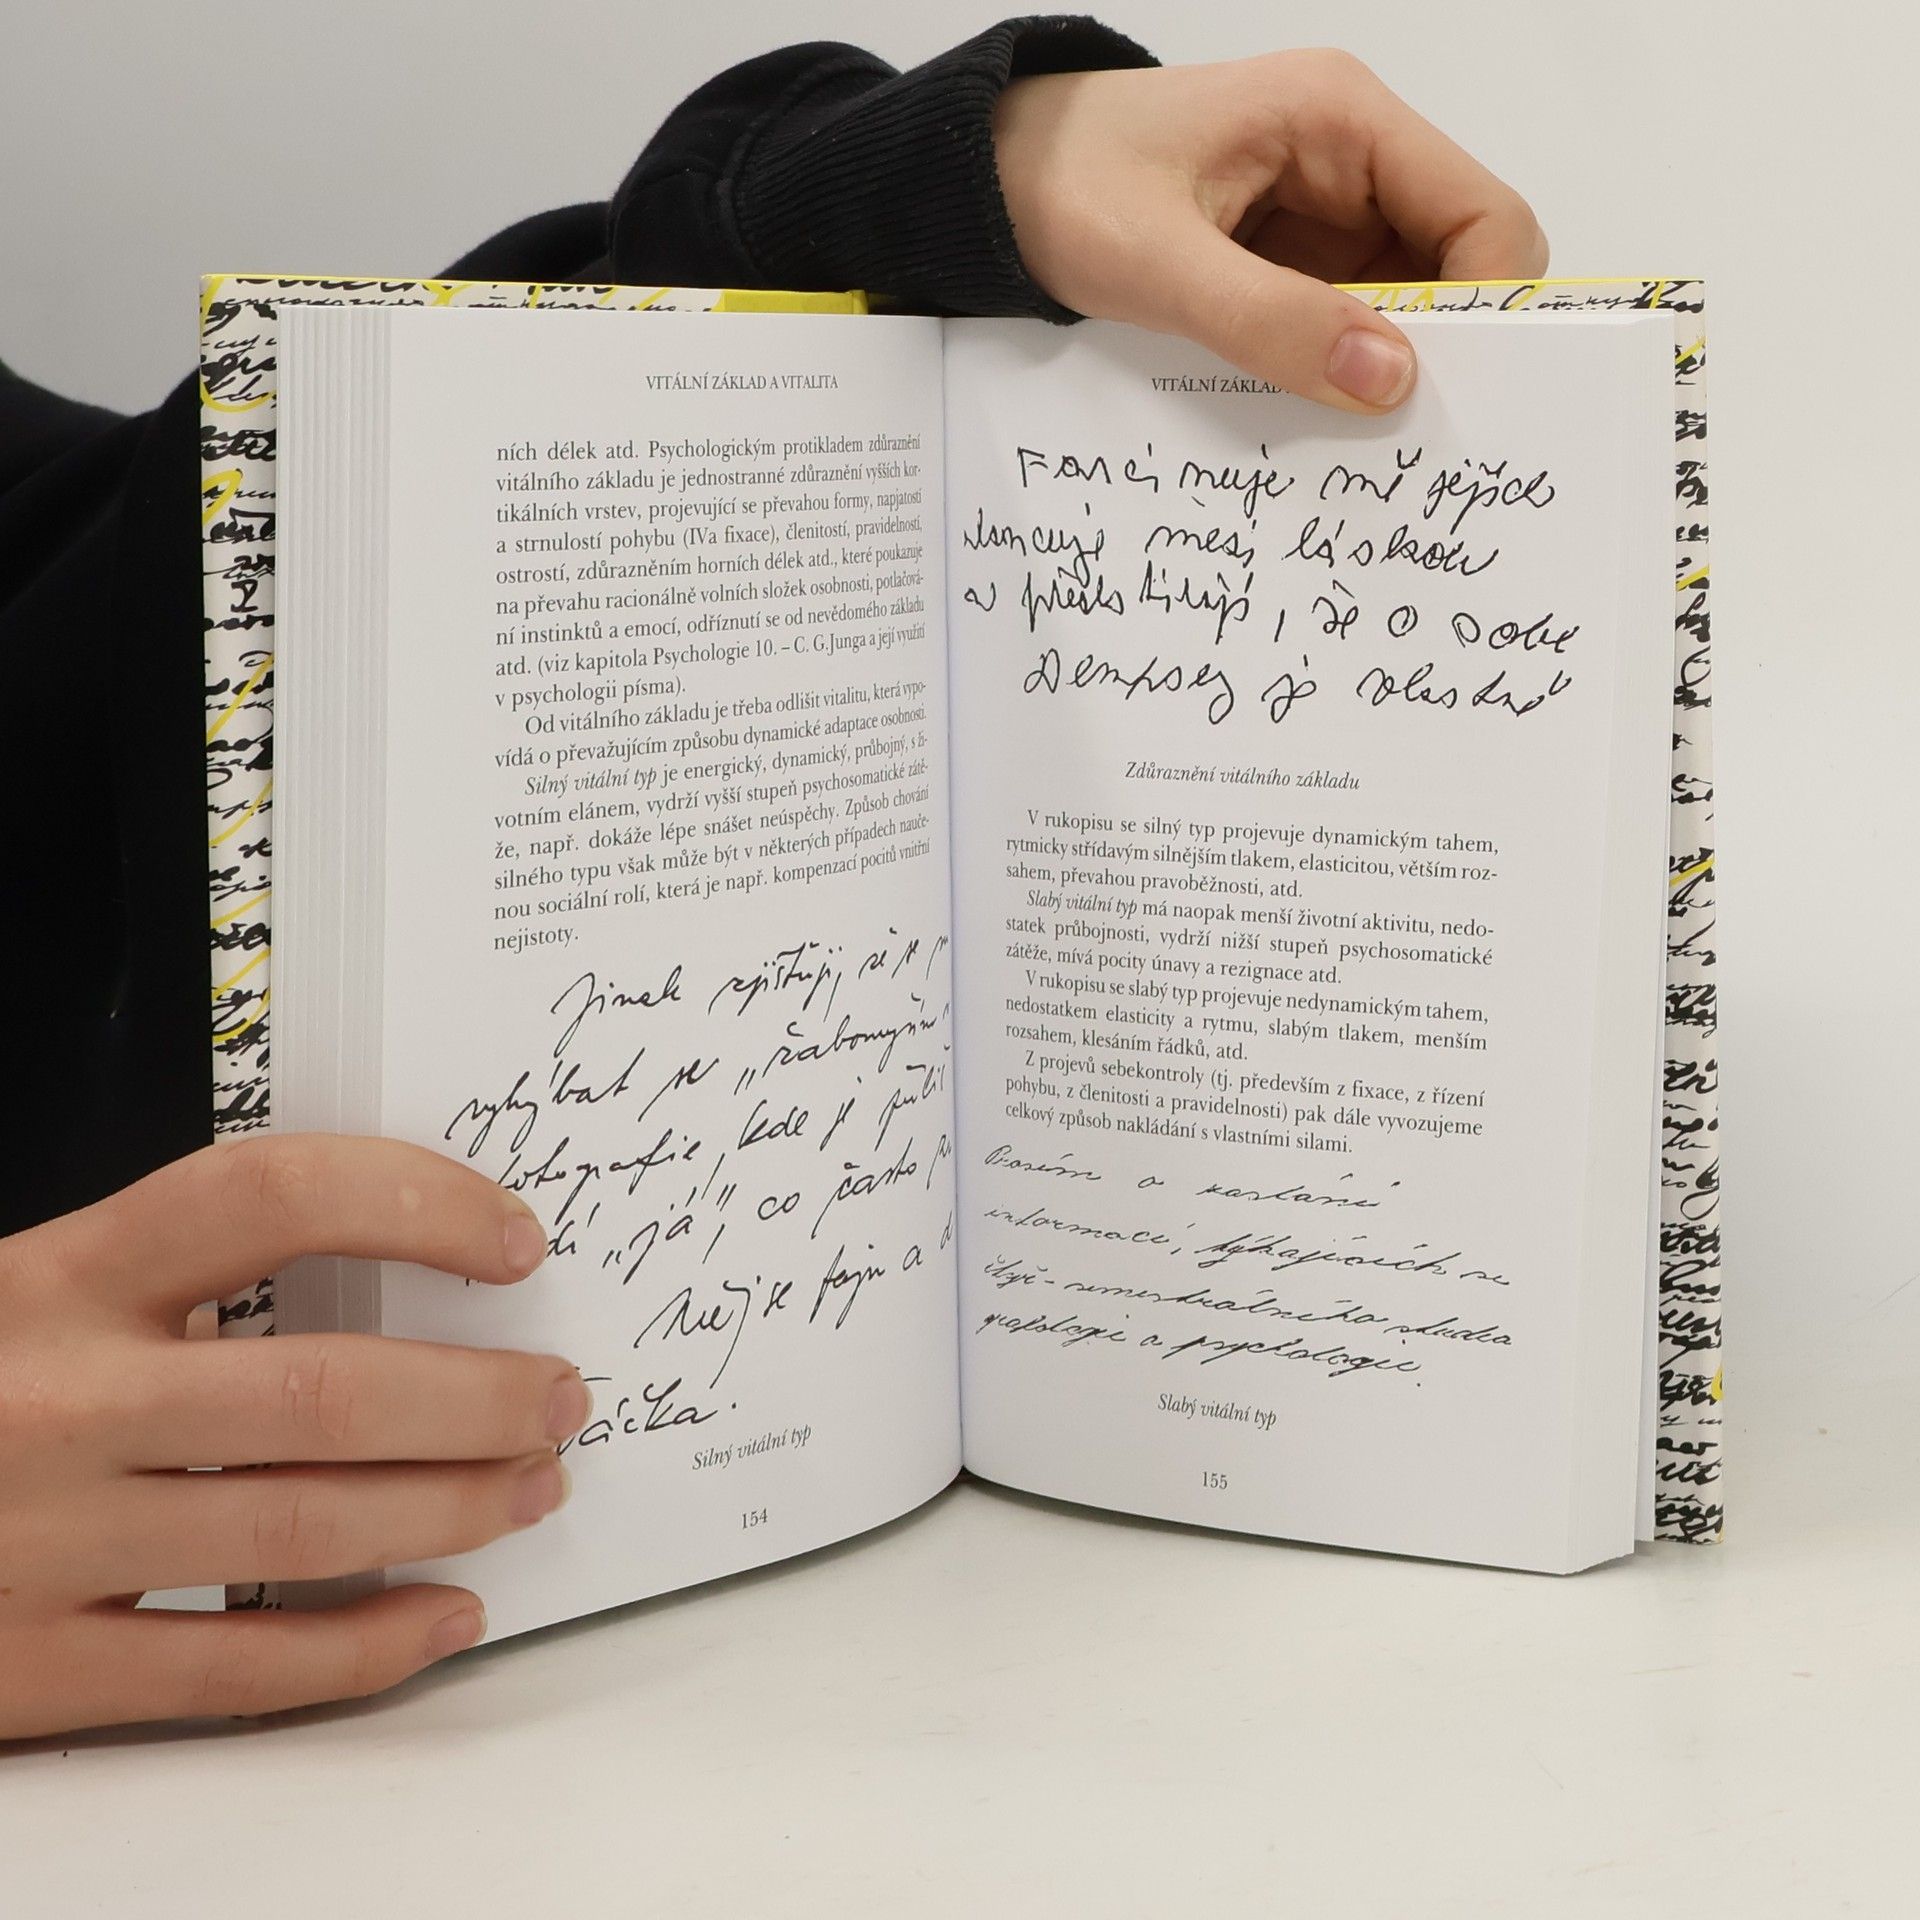 VITÁLNÍ ZÁKLAD A VITALITA
ních délek atd. Psychologickým protikladem zdůraznění
vitálního základu je jednostranné zdůraznění vyšších kor-
tikálních vrstev, projevující se převahou formy, napjatostí
a strnulostí pohybu (IVa fixace), členitostí, pravidelností,
ostrostí, zdůrazněním horních délek atd., které poukazuje
na převahu racionálně volních složek osobnosti, potlačová-
ní instinktů a emocí, odříznutí se od nevědomého základu
atd. (viz kapitola Psychologie 10. – C. G.Junga a její využití
v psychologii písma).
Od vitálního základu je třeba odlišit vitalitu, která vypo-
vídá o převažujícím způsobu dynamické adaptace osobnosti.
Silný vitální typ je energický, dynamický, průbojný, s ži-
votním elánem, vydrží vyšší stupeň psychosomatické zátě-
že, např. dokáže lépe snášet neúspěchy. Způsob chování
silného typu však může být v některých případech nauče-
nou sociální rolí, která je např. kompenzací pocitů vnitřní
nejistoty.
Jinak zjišťuji, že se
vyhýbat se „žabomyším
fotografie, kde je
„já", co často
Měj se fajn a
Silný vitální typ
154
VITÁLNÍ ZÁKLAD
Fascinuje mě jejich
mezi láskou
a , že o sobě
Dempsey je vlastně
Zdůraznění vitálního základu
V rukopisu se silný typ projevuje dynamickým tahem,
rytmicky střídavým silnějším tlakem, elasticitou, větším roz-
sahem, převahou pravoběžnosti, atd.
Slabý vitální typ má naopak menší životní aktivitu, nedo-
statek průbojnosti, vydrží nižší stupeň psychosomatické
zátěže, mívá pocity únavy a rezignace atd.
V rukopisu se slabý typ projevuje nedynamickým tahem,
nedostatkem elasticity a rytmu, slabým tlakem, menším
rozsahem, klesáním řádků, atd.
Z projevů sebekontroly (tj. především z fixace, z řízení
pohybu, z členitosti a pravidelnosti) pak dále vyvozujeme
celkový způsob nakládání s vlastními silami.
Prosím o zaslání
informací, týkajících se
čtyř-semestrálního studia
grafologie a psychologie.
Slabý vitální typ
155